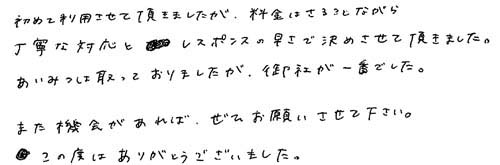 初めて利用させて頂きましたが、料金はさることながら
丁寧な対応と レスポンスの早さで決めさせて頂きました。
あいみつは取っておりましたが、御社が一番でした。
また機会があれば、ぜひお願いさせて下さい。
この度はありがとうございました。